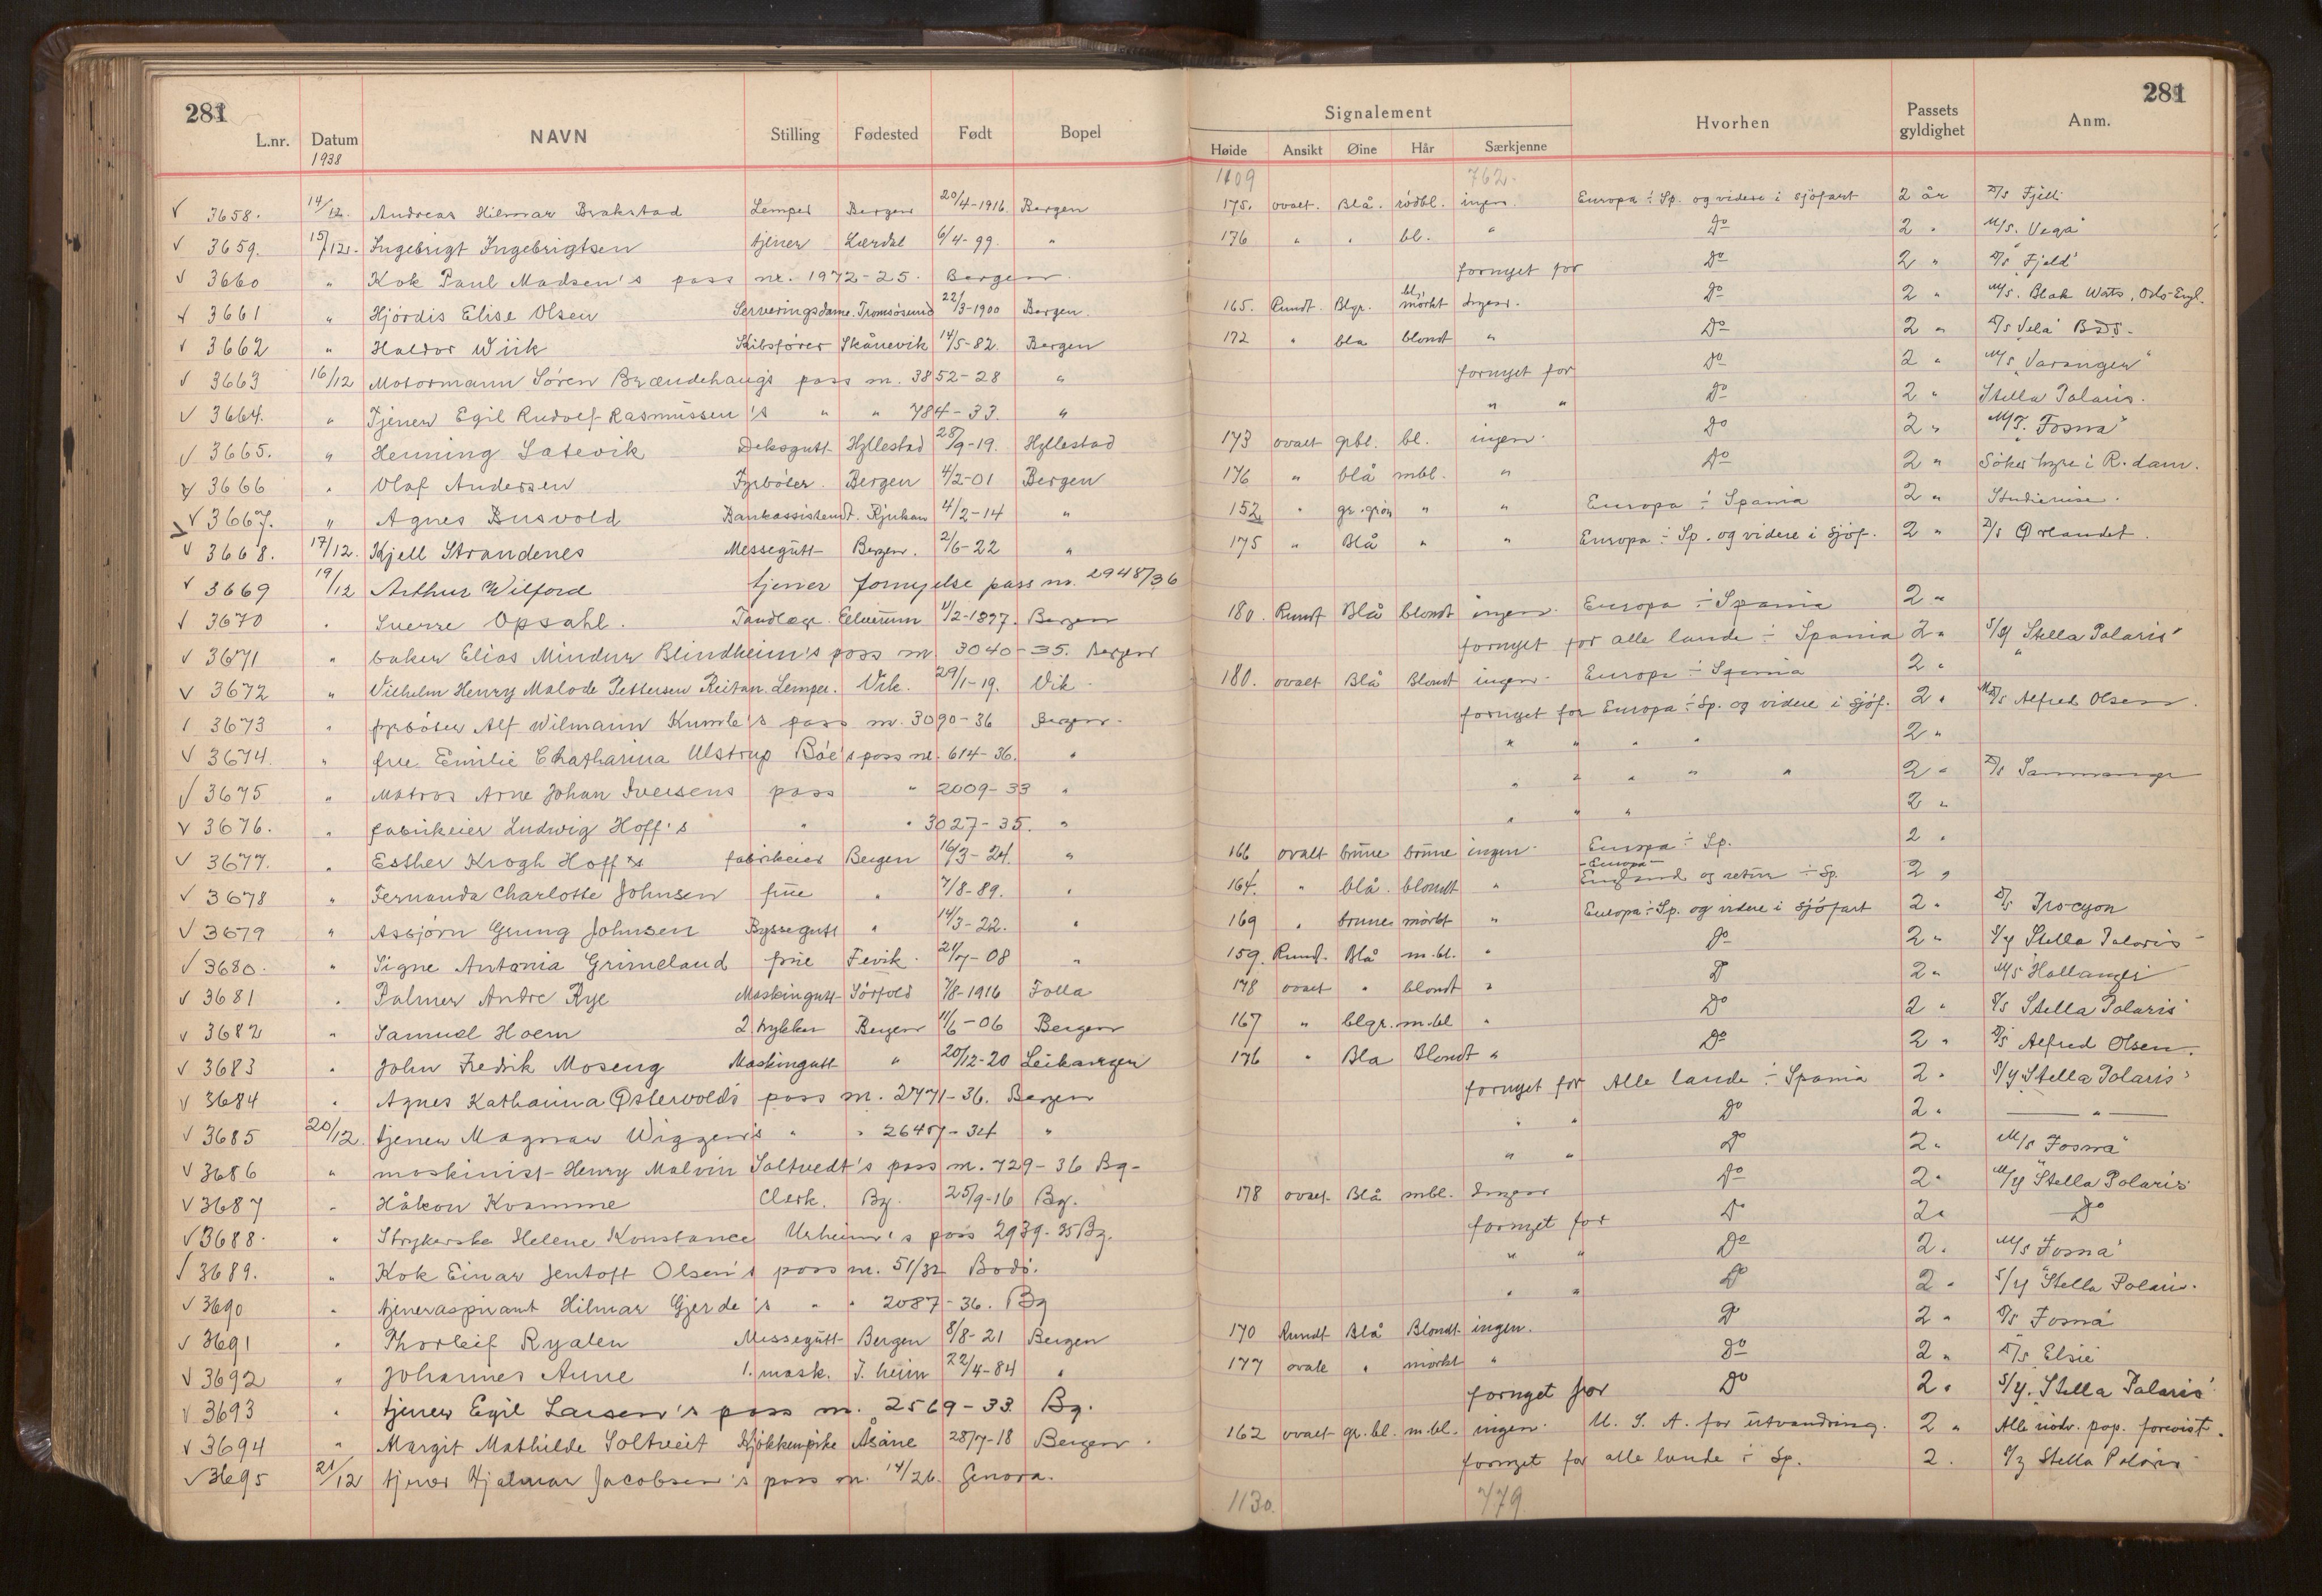 281 281
L.nr. Datum NAVN Stilling Fødested Født Bopel Signalement Hvorhen Passets gyldighet Anm.
1938 Høide Ansikt Øine Hår Særkjenne
1109 762-
√ 3658. 14/12. Andreas Hilmar Brakstad Lemper Bergen 20/4-1916. Bergen 175. ovalt. Blå. rødbl. ingen. Europa ÷ Sp. og videre i sjøfart 2 år D/s Fjell
√ 3659. 15/12. Ingebrigt Ingebrigtsen tjener Lærdal 6/4-99. " 176 " " bl. " Do 2 " M/s. Vega
√ 3660 " Kok Paul Madsen's pass nr. 1972-25. Bergen. fornyet for Do 2 " D/s "Fjeld"
√ 3661 " Hjørdis Elise Olsen Serveringsdame. Tromsøsund 22/3-1900 Bergen. 165. Rundt. Blgr. mørkt bl. Ingen. Do 2 " M/s. Black Wats, Oslo-Engl.
√ 3662 " Haldor Wiik Skibsfører Skånevik 14/5-82. Bergen 172 " bla blondt " Do 2 " D/s Vela BDS-
√ 3663 16/12 Motormann Søren Brændehaug's pass nr. 3852-28 " fornyet for Do 2 " M/s "Varangen"
√ 3664. " Tjener Egil Rudolf Rasmussen's " " 784-33. " " " Do 2 " Stella Polaris.
√ 3665. " Henning Satevik Deksgutt Hyllestad 28/9-19. Hyllestad 173 ovalt grbl. bl. ingen. do 2 " M/T. "Fosna"
√ 3666 " Olaf Andersen Fyrbøter. Bergen 4/2-01 Bergen 176 " blå mbl. " Do 2 " Søker hyre i R.dam.
√ 3667. " Agnes Busvold Bankassistent. Rjukan 4/2-14 " 152 " gr.grøn " " Europa ÷ Spania 2 " Studiereise.
√ 3668. 17/12. Kjell Strandenes Messegutt Bergen. 2/6-22 " 175 " Blå " " Europa ÷ Sp. og videre i sjøf. 2 " D/s Ørlandet.
√ 3669 19/12 Arthur Wilford tjener fornyelse pass nr. 2948/36
√ 3670 " Sverre Opsahl. Tandlæge Elverum 4/2-1897. Bergen 180. Rundt Blå blondt ingen. Europa ÷ Spania 2 "
√ 3671 " baker Elias Mindur Blindheim's pass nr 3040-35. Bergen fornyet for alle lande ÷ Spania 2 " S/y "Stella Polaris"
√ 3672 " Vilhelm Henry Malode Pettersen Reitan. Lemper. Vik. 29/1-19. Vik. 180. ovalt Blå Blondt ingen. Europa ÷ Spania 2 "
√ 3673 " fyrbøter Alf Wilmann Kumle's pass nr. 3090-36 Bergen. fornyet for Europa ÷ Sp. og videre i sjøf. 2 " M/s Alfred Olsen.
√ 3674. " frue Emilie Chatharina Ulstrup Bøe's pass nr. 614-36. " " " " " 2 "
√ 3675 " Matros Arne Johan Iversens pass " 2009-33 " " " " " " 2 " D/s Sammanger
√ 3676. " fabrikeier Ludwig Hoff's " " 3027-35. " " " " 2 "
√ 3677. " Esther Krogh Hoff fabrikeier Bergen 16/3-24. " 166 ovalt brune brune ingen. Europa ÷ Sp. 2 "
√ 3678 " Fernanda Charlotte Johnsen frue " 7/8-89. " 164. " blå. blondt " England og retur ÷ Sp. -Europa- 2 "
√ 3679 " Asbjørn Grung Johnsen Byssegutt " 14/3-22. " 169 " brune mørkt " Europa ÷ Sp. og videre i sjøfart 2 " D/s Procyon
√ 3680. " Signe Antonia Grimeland frue Fevik. 21/7-08 " 159. Rund. Blå m.bl. " Do 2 " S/y Stella Polaris
√ 3681 " Palmer Andre Rye Maskingutt Sørfold 7/8-1916 Folla 178 ovalt " blondt " Do 2 " M/s Hallanger
√ 3682 " Samuel Hoem 2 trykker Bergen 11/6-06 Bergen 167 " blgr. m.bl " Do 2 " S/s Stella Polaris
√ 3683 " John Fredrik Moseng Maskingutt " 20/12-20 Leikanger 176 " Bla Blondt " Do 2 " D/s Alfred Olsen.
√ 3684 " Agnes Katharina Østervold's pass nr. 2771-36. Bergen fornyet for Alle lande ÷ Spania 2 " S/y Stella Polaris
√ 3685 20/12. tjener Magnar Wiggen's " " 2647-34 " " " Do 2 " — " —
√ 3686 " maskinist Henry Malvin Saltvedt's pass nr. 729-36 Bg- " " Do 2 " M/s "Fosna"
√ 3687 " Håkon Kvamme Clerk. Bg. 25/9-16 Bg. 178 ovalt Blå mbl. Ingen Do 2 " M/y "Stella Polaris
√ 3688. " Strykerske Helene Konstance Urheim's pass 2939-35 Bg. fornyet for Do 2 " Do
√ 3689. " Kok Einar Jentoft Olsen's pass nr. 51/32 Bodø. " " Do 2 " M/s "Fosna"
√ 3690 " tjeneraspirant Hilmar Gjerde's " " 2087-36. Bg " " Do 2 " S/y "Stella Polaris.
√ 3691 " Thorleif Ryalen Messegutt Bergen 8/8-21 Bergen 170 Rundt Blå Blondt ingen. Do 2 " D/s Fosna
√ 3692 " Johannes Aune 1. mask. T.heim 22/4-84 " 177 ovale " mørkt " Do 2 " D/s Elsie
√ 3693 " tjener Egil Larsen's pass nr. 2569-33 Bg. fornyet for Do 2 " S/y. Stella Polaris
√ 3694 " Margit Mathilde Soltveit Kjøkkenpike Åsane 28/7-18 Bergen. 162 ovalt gr.bl. m.bl. ingen. U.S.A. for utvandring. 2 " Alle nødv. pap. forevist.
√ 3695 21/12 tjener Hjalmar Jacobsen's pass nr. 14/26. Genova. fornyet for alle lande ÷ Sp. 2 " S/y Stella Polaris
1130. 779